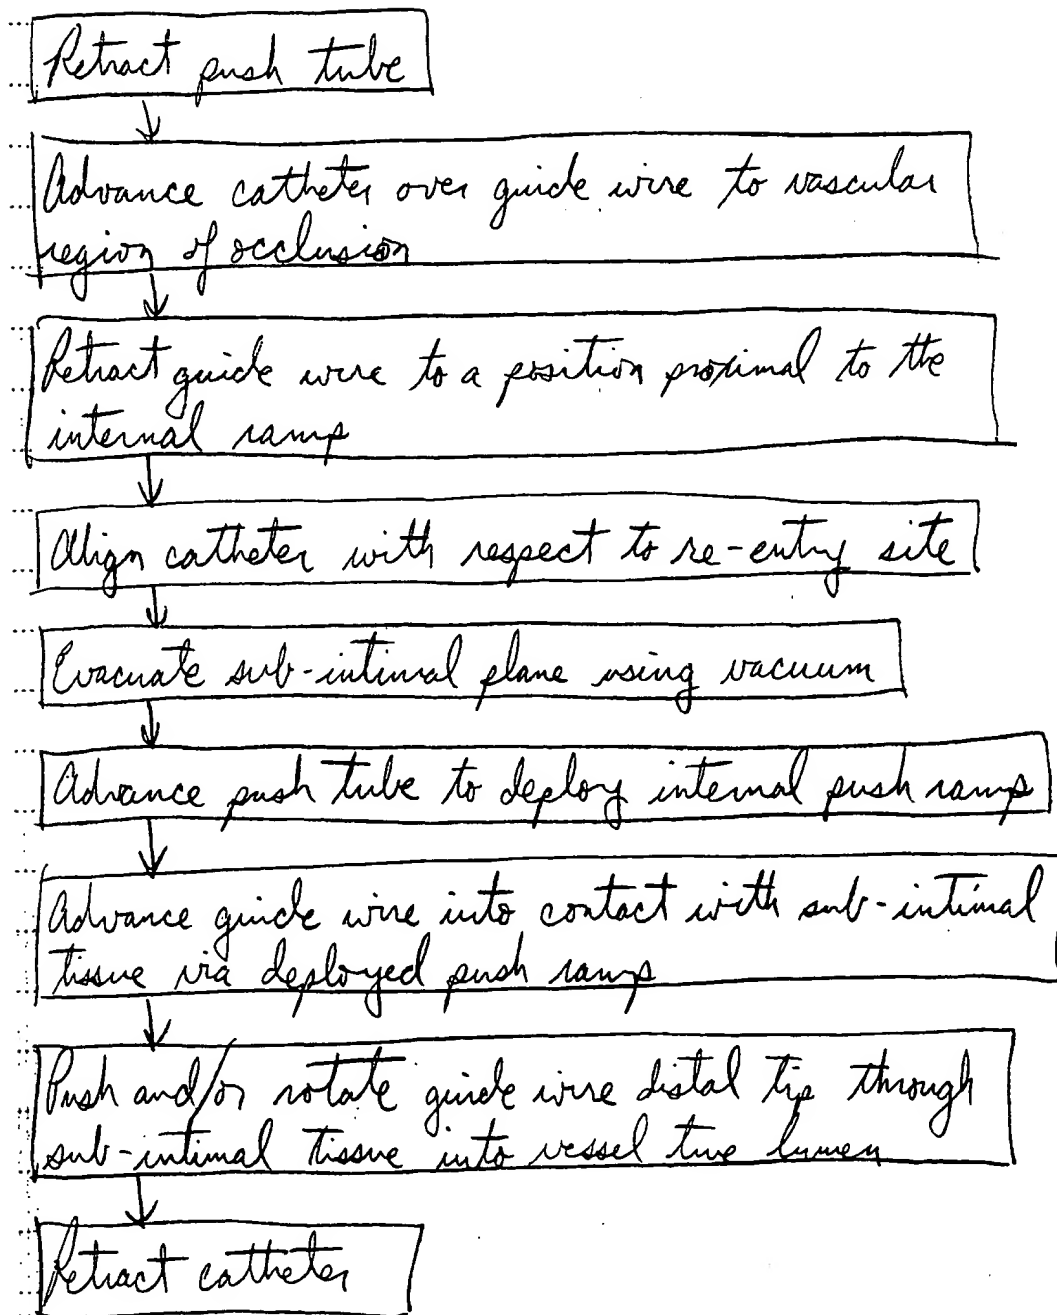 Retract push tube
Advance catheter over guide wire to vascular
region of occlusion
Retract guide wire to a position proximal to the
internal ramp
Align catheter with respect to re-entry site
Evacuate sub-intimal plane using vacuum
Advance push tube to deploy internal push ramp
Advance guide wire into contact with sub-intimal
tissue via deployed push ramp
Push and/or rotate guide wire distal tip through
sub-intimal tissue into vessel true lumen
Retract catheter